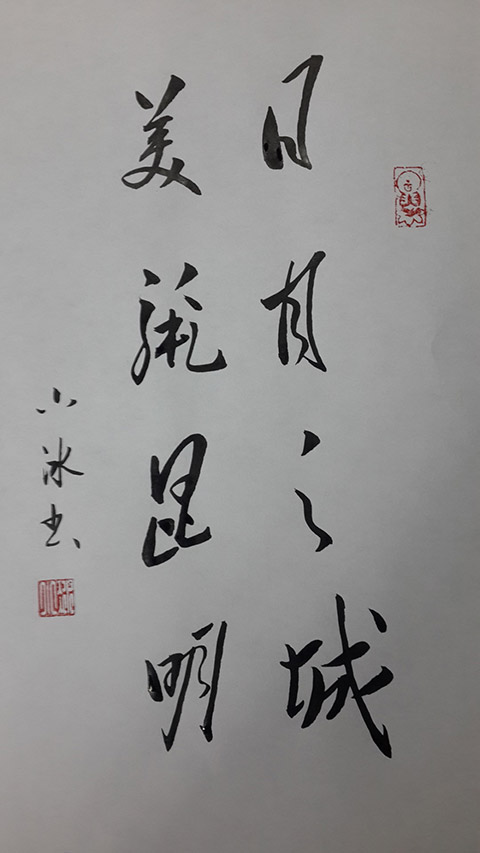 日月之城
美麗昆明
小冰书